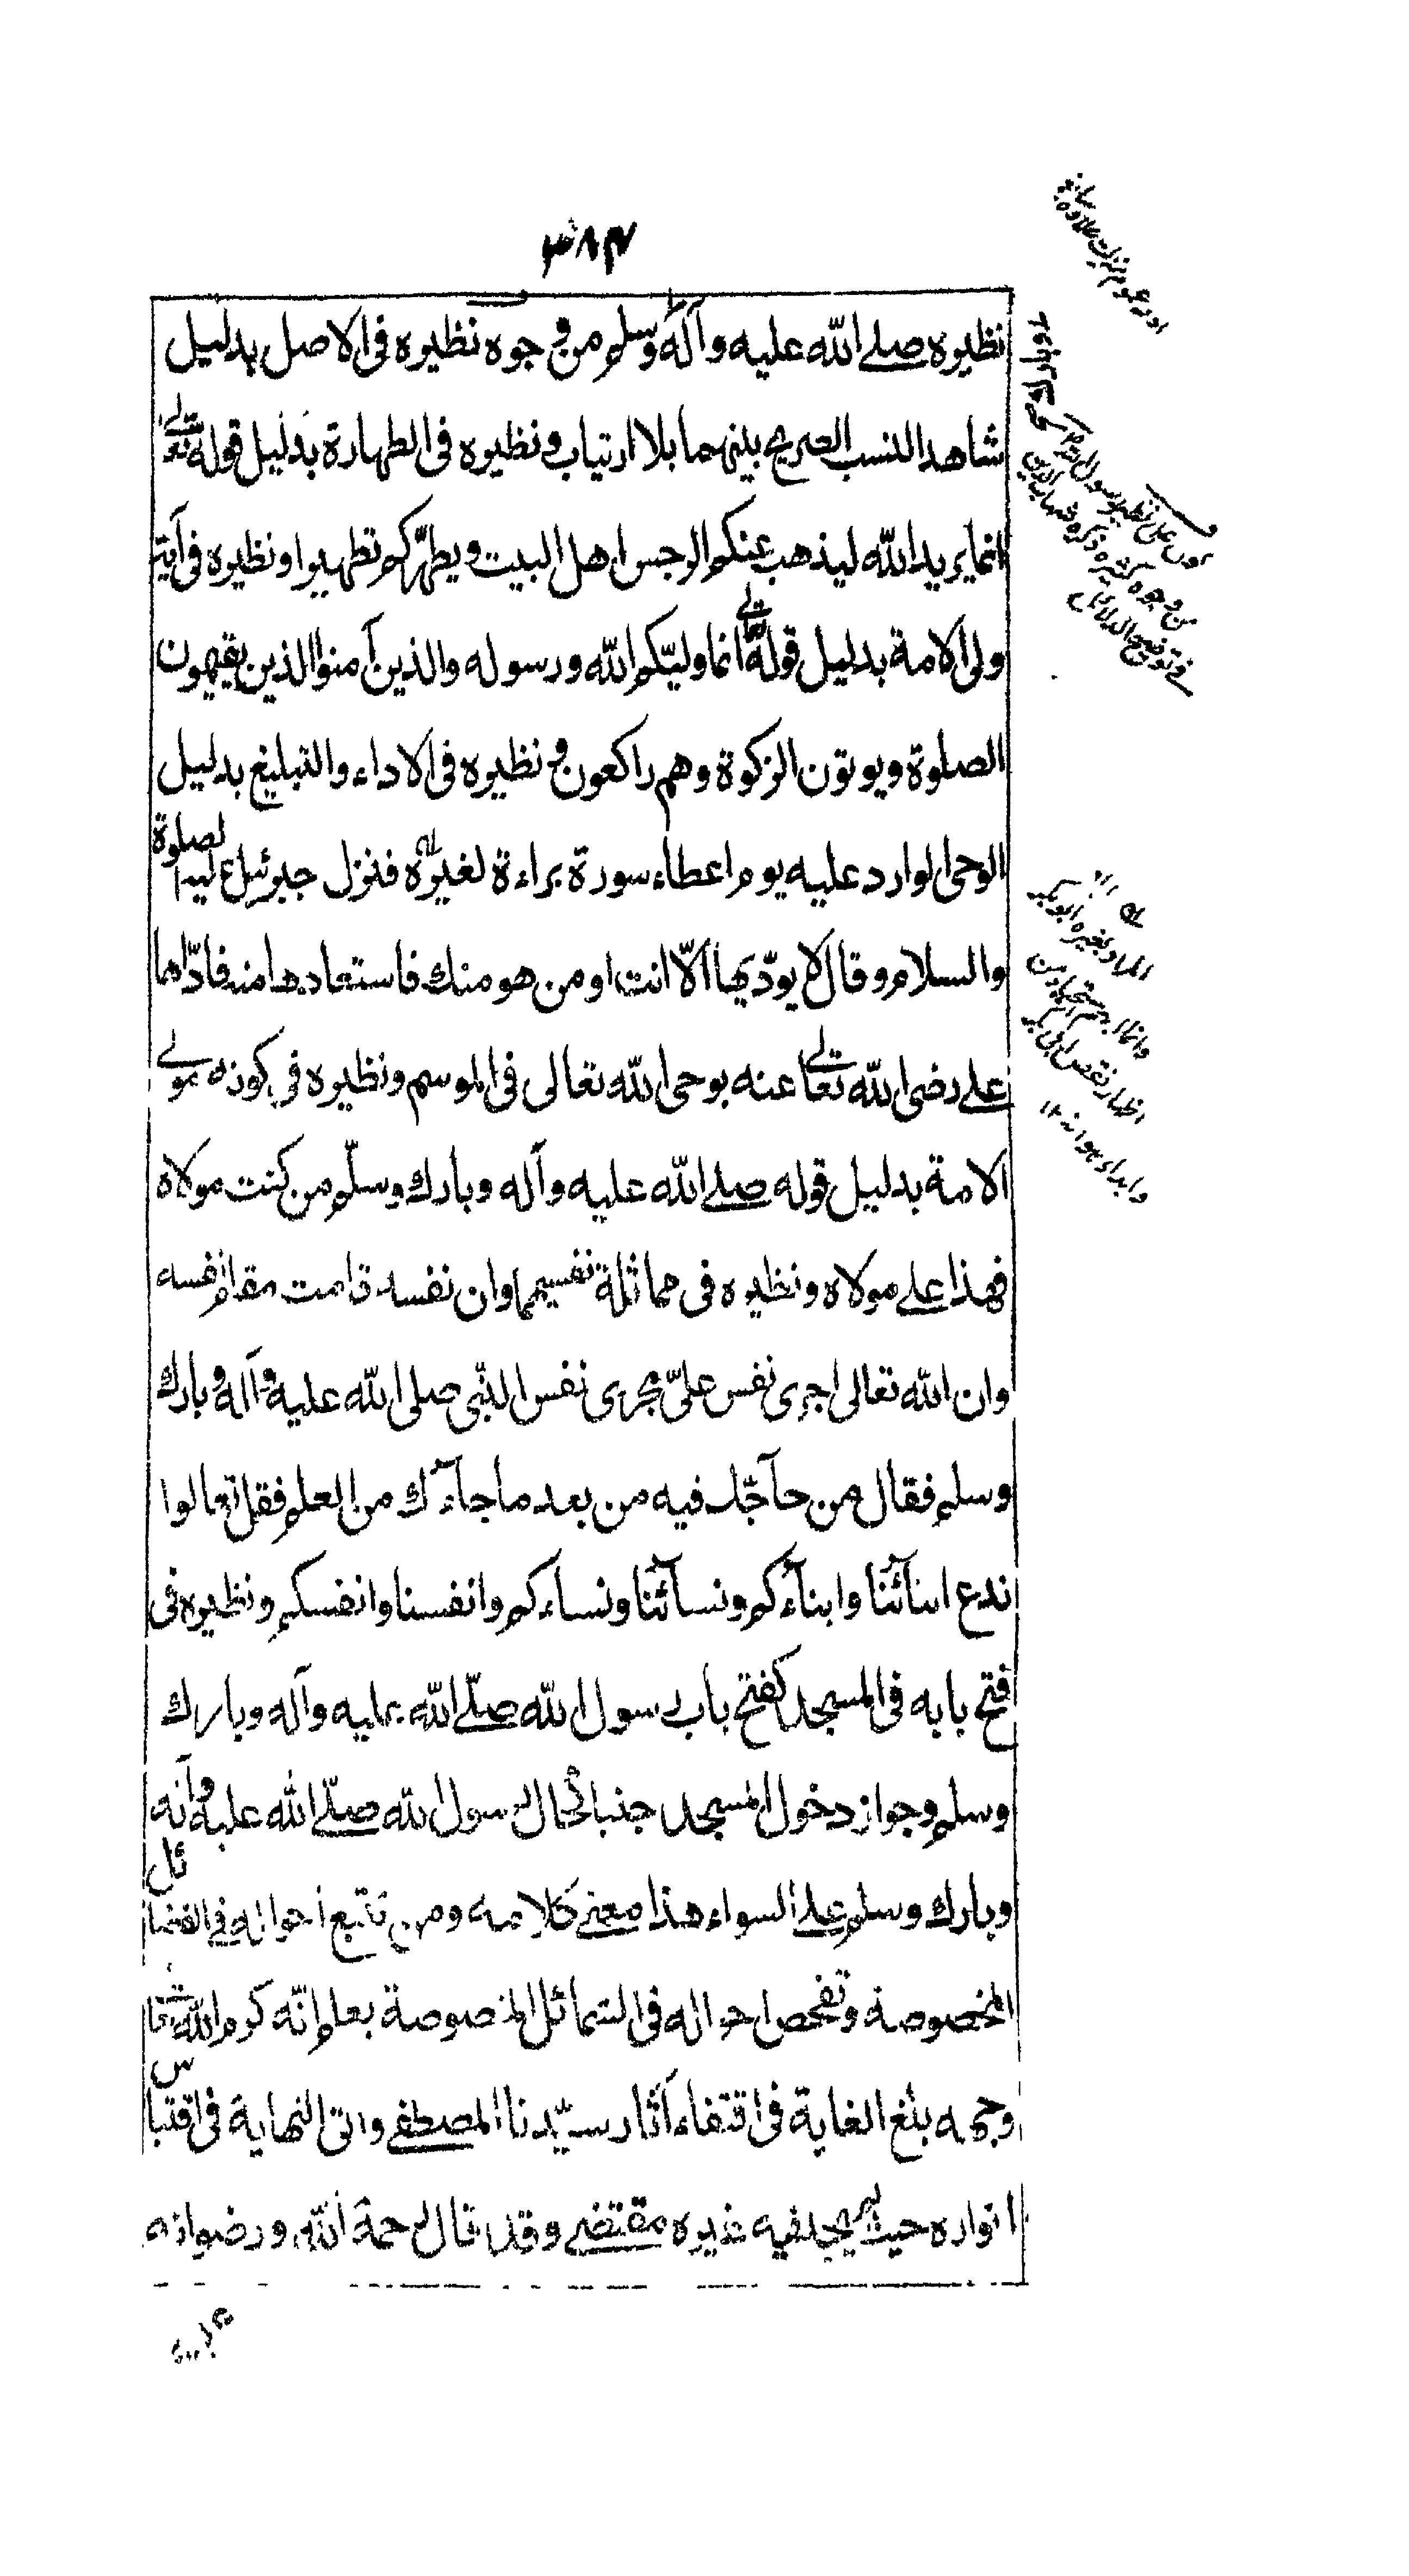 ٣٨٣
نظيره صلے الله عليه وآله وسلم من وجوه نظيره فی الاصل بدليل
شاهد النسب الصريح بينهما بلا ارتياب و نظيره فی الطهارة بدليل قوله تعالے
انما يريد الله ليذهب عنكم الرجس اهل البيت ويطهّركم تطهيرا ونظيره فی آية
ولی الامة بدليل قوله تعالے انما وليّكم الله ورسوله والذين آمنوا الذين يقيمون
الصلوة ويوتون الزكوة وهم راكعون و نظيره فی الاداء والتبليغ بدليل
الوحی الوارد عليه يوم اعطاء سورة براءة لغيره فنزل جبرئيل عليه الصلوة
والسلام وقال لا يودّيها الّا انت او من هو منك فاستعادها منه فادّاها
علے رضی الله تعالے عنه بوحی الله تعالى فی الموسم ونظيره فی كونه مولے
الامة بدليل قوله صلے الله عليه وآله وبارك وسلّم من كنت مولاه
فهذا علے مولاه ونظيره فی مماثلة نفسيهما وان نفسه قامت مقام نفسه
وان الله تعالى اجرى نفس علیّ مجرى نفس النبّی صلى الله عليه وآله وبارك
وسلم فقال من حآجّك فيه من بعد ما جآءك من العلم فقل تعالوا
ندع ابنآئنا وابنآءكم ونسآئنا ونساءكم وانفسنا وانفسكم ونظيره فی
فتح بابه فی المسجد كفتح باب رسول الله صلّے الله عليه وآله وبارك
وسلم وجواز دخول المسجد جنبا كحال رسول الله صلّے الله عليه وآله
وبارك وسلم علے السواء هذا معنے كلامه ومن تتبع احواله فی الفضائل
المخصوصة وتفحص احواله فی الشمائل المنصوصة يعلم انّه كرم الله تعالے
وجهه بلغ الغاية فی اقتفاء آثار سيّدنا المصطفے واتی النهاية فی اقتباس
انواره حيث لم يجد فيه غيره مقتضے وقد قال رحمة الله ورضوانه